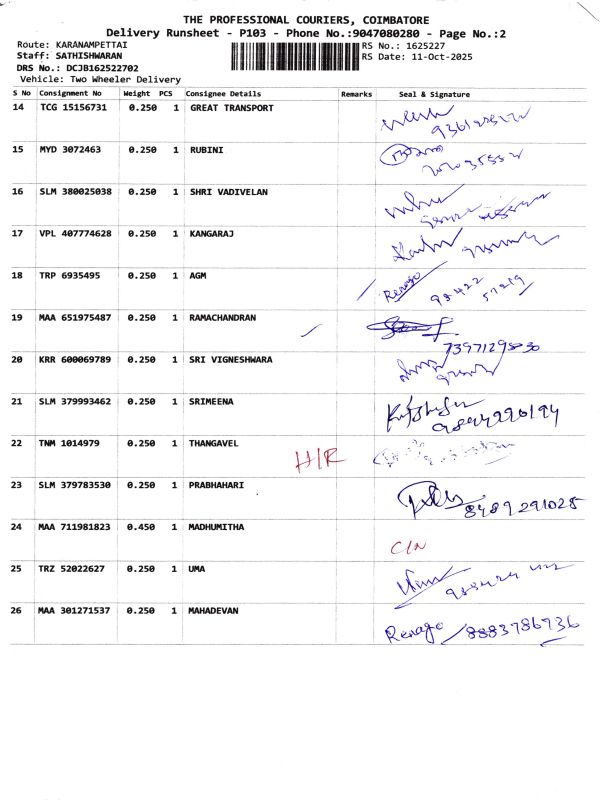 THE PROFESSIONAL COURIERS, COIMBATORE
Delivery Runsheet - P103 - Phone No.:9047080280 - Page No.:2
Route: KARANAMPETTAI RS No.: 1625227
Staff: SATHISHWARAN RS Date: 11-Oct-2025
DRS No.: DCJB162522702
Vehicle: Two Wheeler Delivery
S No Consignment No Weight PCS Consignee Details Remarks Seal & Signature
14 TCG 15156731 0.250 1 GREAT TRANSPORT
15 MYD 3072463 0.250 1 RUBINI
16 SLM 380025038 0.250 1 SHRI VADIVELAN
17 VPL 407774628 0.250 1 KANGARAJ
18 TRP 6935495 0.250 1 AGM
Renago 98422 57219
19 MAA 651975487 0.250 1 RAMACHANDRAN
20 KRR 600069789 0.250 1 SRI VIGNESHWARA
21 SLM 379993462 0.250 1 SRIMEENA
22 TNM 1014979 0.250 1 THANGAVEL
H/R
23 SLM 379783530 0.250 1 PRABHAHARI
8489291025
24 MAA 711981823 0.450 1 MADHUMITHA
C/N
25 TRZ 52022627 0.250 1 UMA
26 MAA 301271537 0.250 1 MAHADEVAN
Renago 8883786736